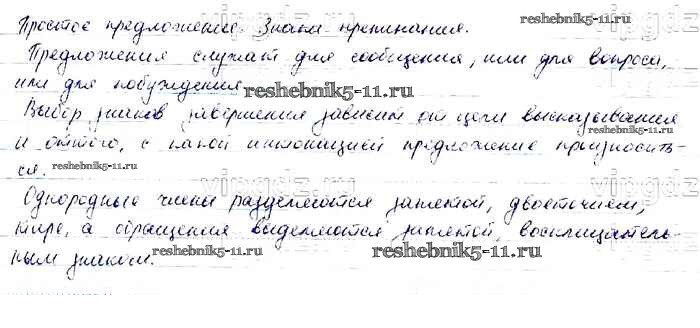 Простое предложение. Знаки препинания.
reshebnik5-11.ru
Предложения служат для сообщения, или для вопроса,
или для побуждения
reshebnik5-11.ru
Выбор знаков завершения зависит от цели высказывания
и оттого, с какой интонацией предложение произносить-
ся.
reshebnik5-11.ru
Однородные члены разделяются запятой, двоеточием,
тире, а обращения выделяются запятой, восклицатель-
ным знаком.
reshebnik5-11.ru
vipgdz.ru